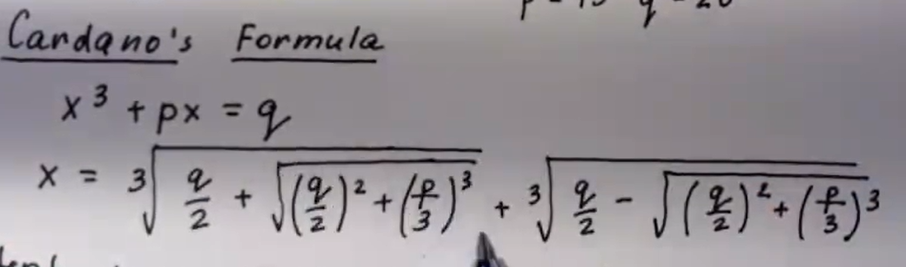 Cardano's Formula
x³ + px = q
x = ∛(q/2 + √((q/2)² + (p/3)³)) + ∛(q/2 - √((q/2)² + (p/3)³))